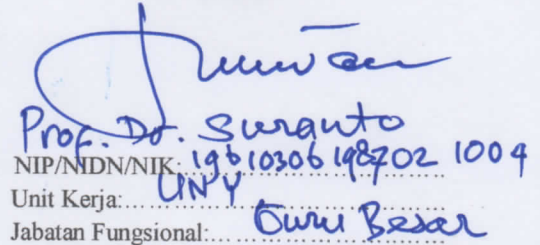 Prof. Dr. Suranto
NIP/NIDN/NIK: 19610306 198702 1004
Unit Kerja: UNY
Jabatan Fungsional: Guru Besar